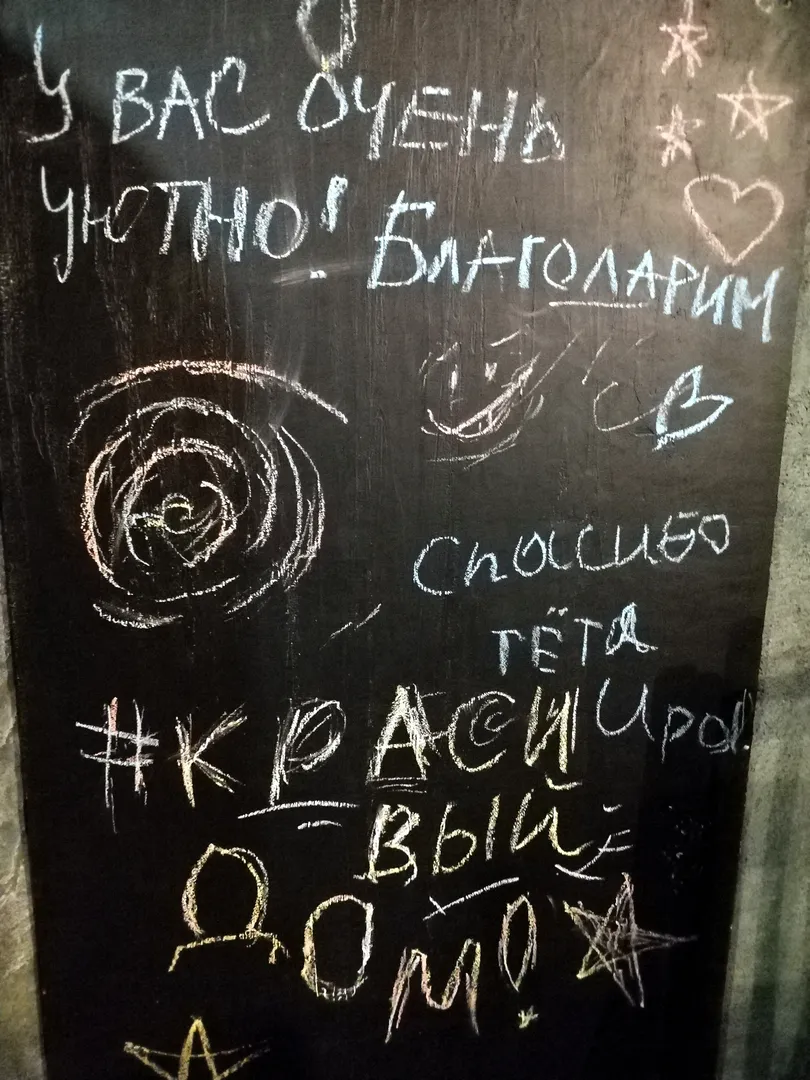 У ВАС ОЧЕНЬ
УЮТНО! БЛАГОЛАРИМ
СВ
Спасибо
ТЁТЯ
Ира
#КРАСИ
ВЫЙ
ДОМ!